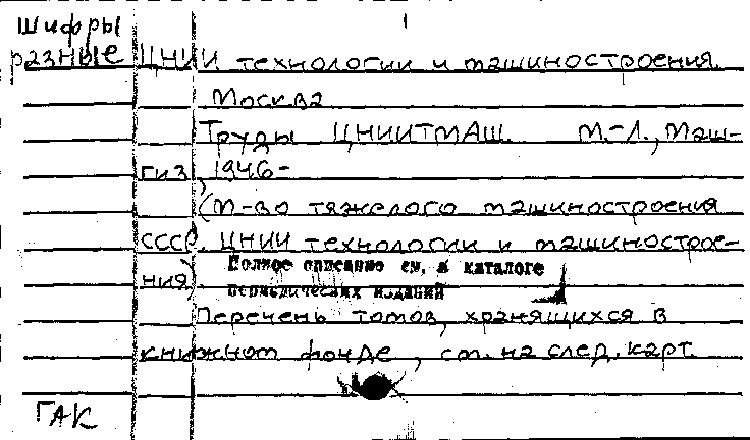 1
Шифры
разные ЦНИИ технологии и машиностроения.
Москва
Труды ЦНИИТМАШ. М.-Л., Маш-
гиз, 1946-
(М-во тяжелого машиностроения
СССР. ЦНИИ технологии и машинострое-
ния).
Полное описание см. в каталоге
периодических изданий
Перечень томов, хранящихся в
книжном фонде, см. на след. карт.
ГАК